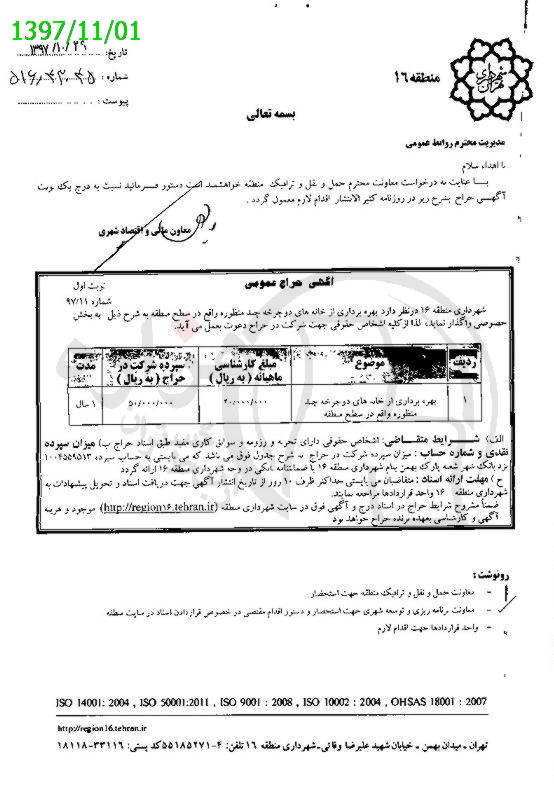 1397/11/01
تاریخ: ۱۳۹۷/۱۰/۲۹
شماره: ۵۱۶/۴۲۰۴۵
پیوست:
منطقه ۱۶
بسمه تعالی
مدیریت محترم روابط عمومی
با اهداء سلام
بـــا عنایت به درخواست معاونت محترم حمل و نقل و ترافیک منطقه خواهشمند است دستور فــرمائید نسبت به درج یک نوبت
آگهــی حراج بشرح زیر در روزنامه کثیر الانتشار اقدام لازم معمول گردد.
معاون مالی و اقتصاد شهری
آگهی حراج عمومی
نوبت اول
شماره ۹۷/۱۱
شهرداری منطقه ۱۶ درنظر دارد بهره برداری از خانه های دوچرخه چند منظوره واقع در سطح منطقه به شرح ذیل به بخش
خصوصی واگذار نماید، لذا از کلیه اشخاص حقوقی جهت شرکت در حراج دعوت بعمل می آید.
ردیف موضوع مبلغ کارشناسی ماهیانه ( به ریال ) سپرده شرکت در حراج ( به ریال ) مدت
۱ بهره برداری از خانه های دوچرخه چند منظوره واقع در سطح منطقه ۲۰/۰۰۰/۰۰۰ ۵۰/۰۰۰/۰۰۰ ۱ سال
الف) شــرایط متقــاضی: اشخاص حقوقی دارای تجربه و رزومه و سوابق کاری مفید طبق اسناد حراج ب) میزان سپرده
نقدی و شماره حساب : میزان سپرده شرکت در حراج به شرح جدول فوق می باشد که می بایستی به حساب سپرده ۱۰۰۴۵۵۹۵۱۳
نزد بانک شهر شعبه پارک بهمن بنام شهرداری منطقه ۱۶ یا ضمانتنامه بانکی در وجه شهرداری منطقه ۱۶ ارائه گردد
ج ) مهلت ارائه اسناد : متقاضیان می بایستی حداکثر ظرف ۱۰ روز از تاریخ انتشار آگهی جهت دریافت اسناد و تحویل پیشنهادات به
شهرداری منطقه ۱۶ واحد قراردادها مراجعه نمایند.
ضمناً مشروح شرایط حراج در اسناد درج و آگهی فوق در سایت شهرداری منطقه (http://region۱۶.tehran.ir) موجود و هزینه
آگهی و کارشناسی بعهده برنده حراج خواهد بود
رونوشت :
- معاونت حمل و نقل و ترافیک منطقه جهت استحضار
- معاونت برنامه ریزی و توسعه شهری جهت استحضار و دستور اقدام مقتضی در خصوص قراردادن اسناد در سایت منطقه
- واحد قراردادها جهت اقدام لازم
ISO 14001: 2004 , ISO 50001:2011 , ISO 9001 : 2008 , ISO 10002 : 2004 , OHSAS 18001 : 2007
http://region16.tehran.ir
تهران ـ میدان بهمن ـ خیابان شهید علیرضا وفائی ـ شهرداری منطقه ۱۶ تلفن: ۴-۵۵۱۸۵۲۷۱ کد پستی: ۳۳۱۱۶-۱۸۱۱۸